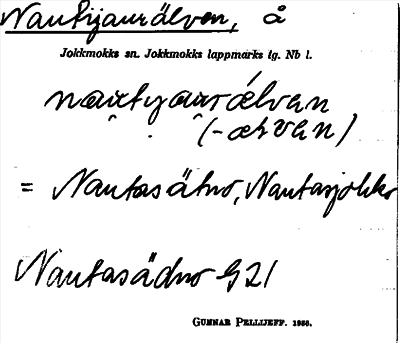 Nautijaurälven, å
Jokkmokks sn. Jokkmokks lappmarks tg. Nb l.
nautijaurälvan
(-ærvan)
= Nautasätno, Nautasjokko
Nautasädno G21
GUNNAR PELLIJEFF. 1956.